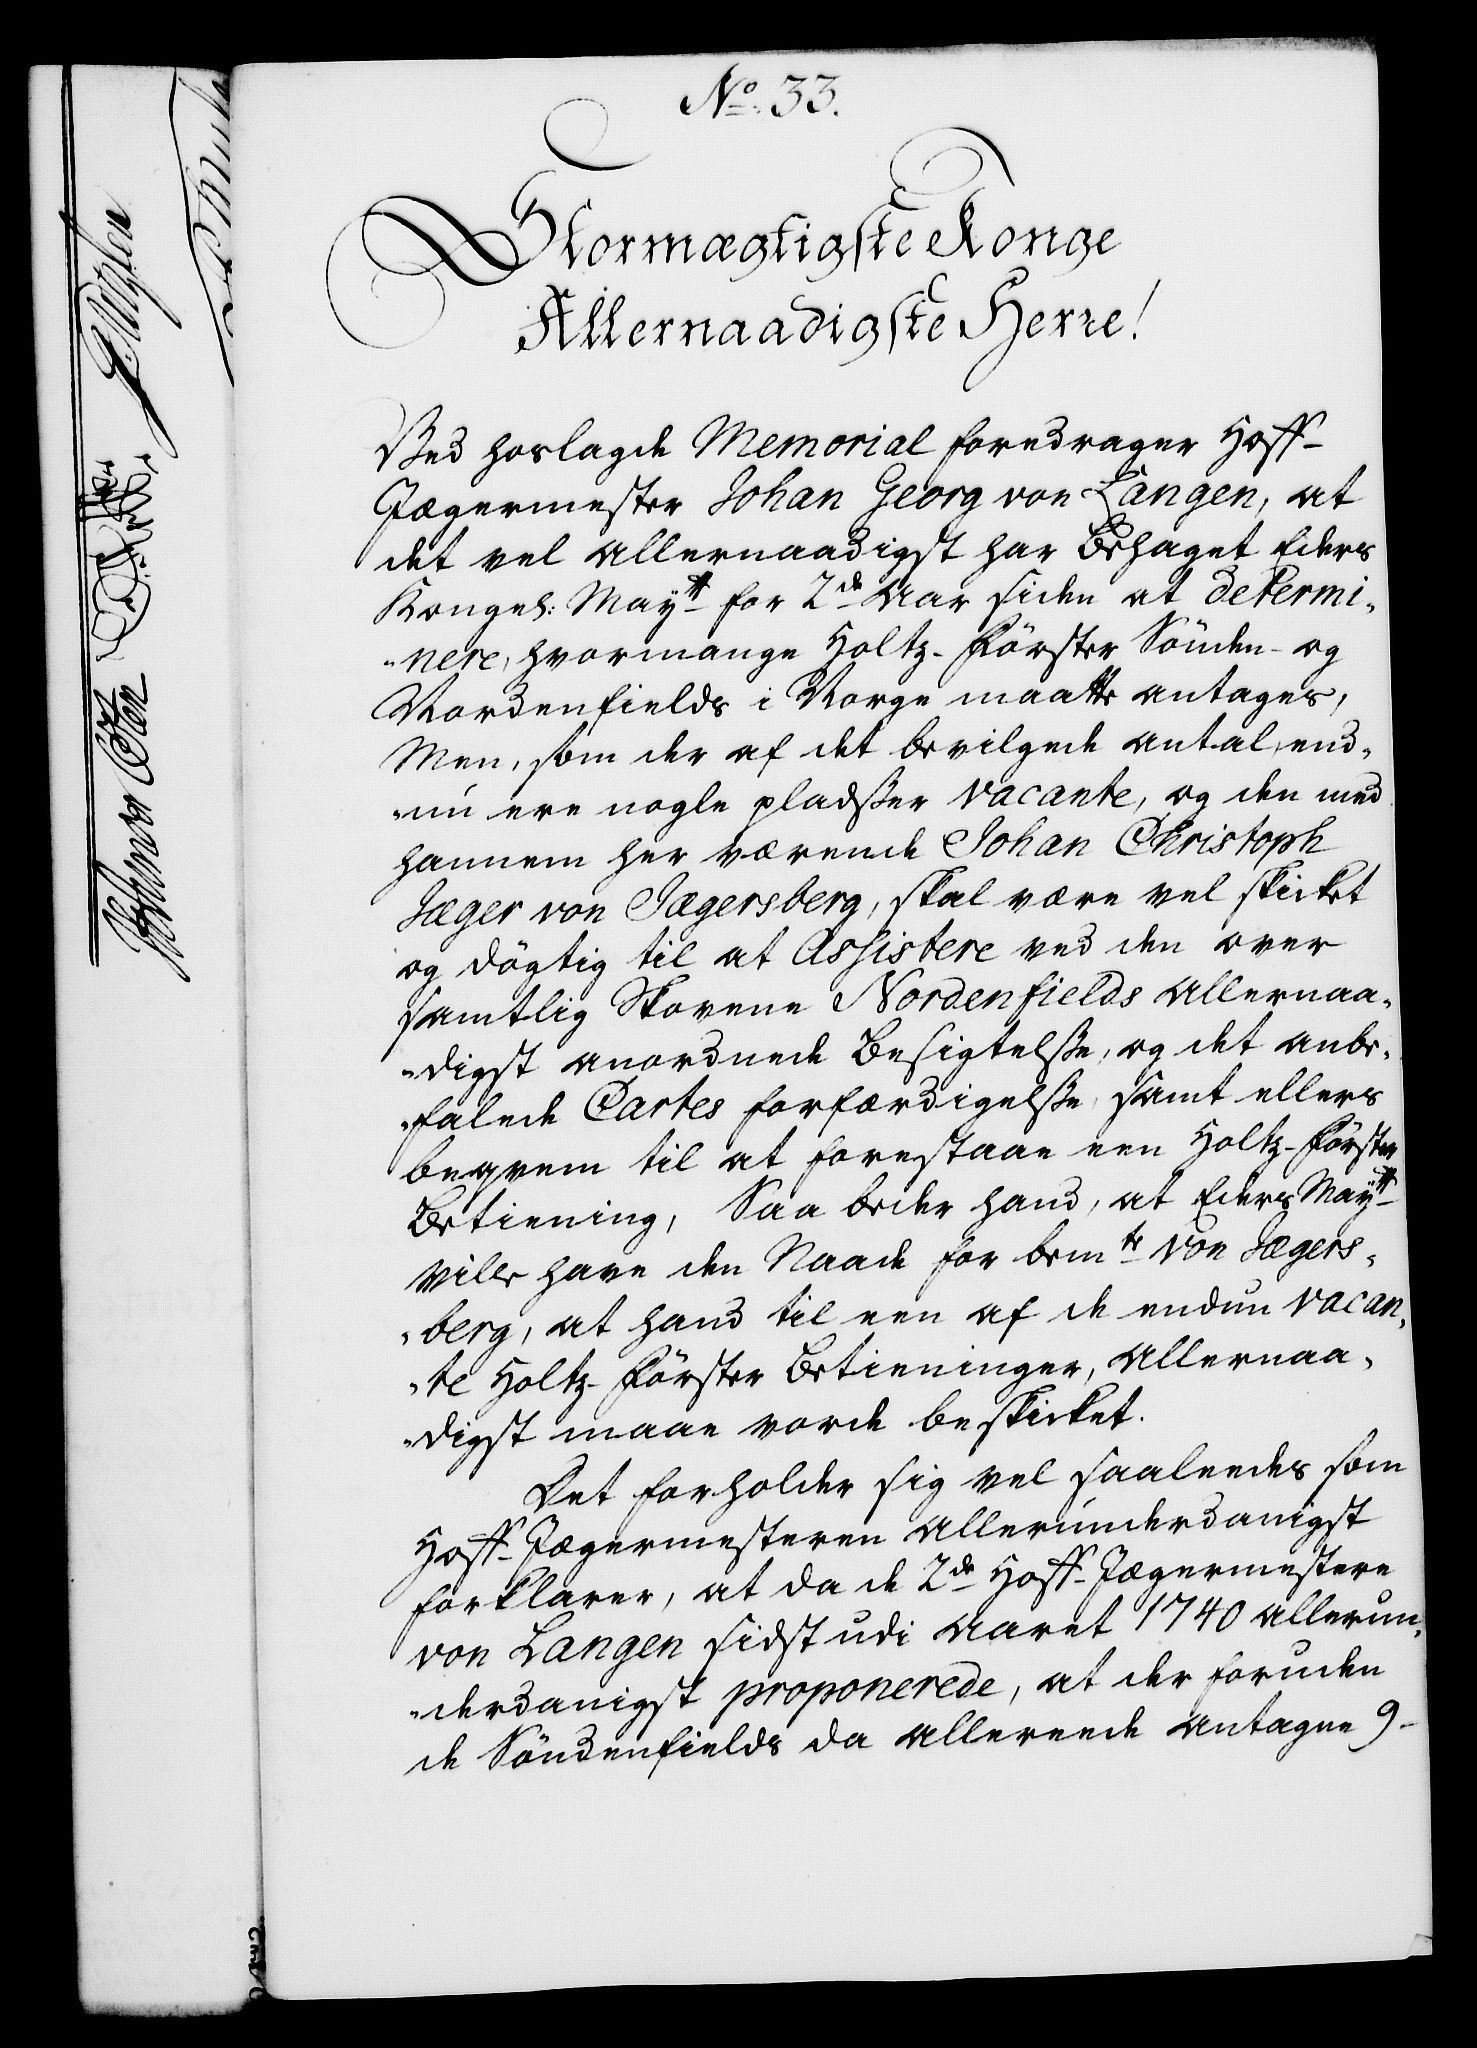 No. 33.
Stormægtigste Konge
Allernaadigste Herre!
Ved hoslagde Memorial foredrager Hoff-
Jægermester Johan Georg von Langen, at
det vel allernaadigst har behaget Eders
Kongel: Maytt for 2de Aar siden at determi-
-nere, hvormange Holtz-Förster Sönden- og
Nordenfields i Norge maatte antages,
Men, som der af det bevilgede antal, end-
-nu ere nogle pladsser vacante, og den med
hannem her værende Johan Christoph
Jæger von Jægersberg, skal være vel skicket
og dögtig til at assistere ved den over
samtlig Skovene Nordenfields allernaa-
-digst anordnede Besigtelsse, og det anbe-
-falede Cartes forfærdigelsse, samt ellers
beqvem til at forestaae een Holtz-Förster
Betiening, Saa beder hand, at Eders Maytt
ville have den Naade for bemte von Jægers-
-berg, at hand til een af de endnu vacan-
-te Holtz-Förster Betieninger, allernaa-
-digst maae vorde beskicket.
Det forholder sig vel saaleedes som
Hoff-Jægermesteren allerunderdanigst
forklarer, at da de 2de Hoff-Jægermestere
von Langen sidst udi Aaret 1740 allerun-
-derdanigst proponerede, at der foruden
de Söndenfields da allereede antagne 9-